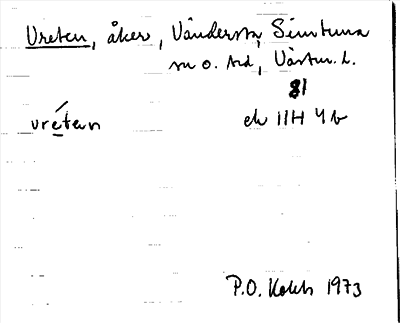 Vreten, åker, Vändersta, Simtuna
sn o. hd, Västm. l.
81
vrétan ek 11H 4b
P.O. Kolch 1973